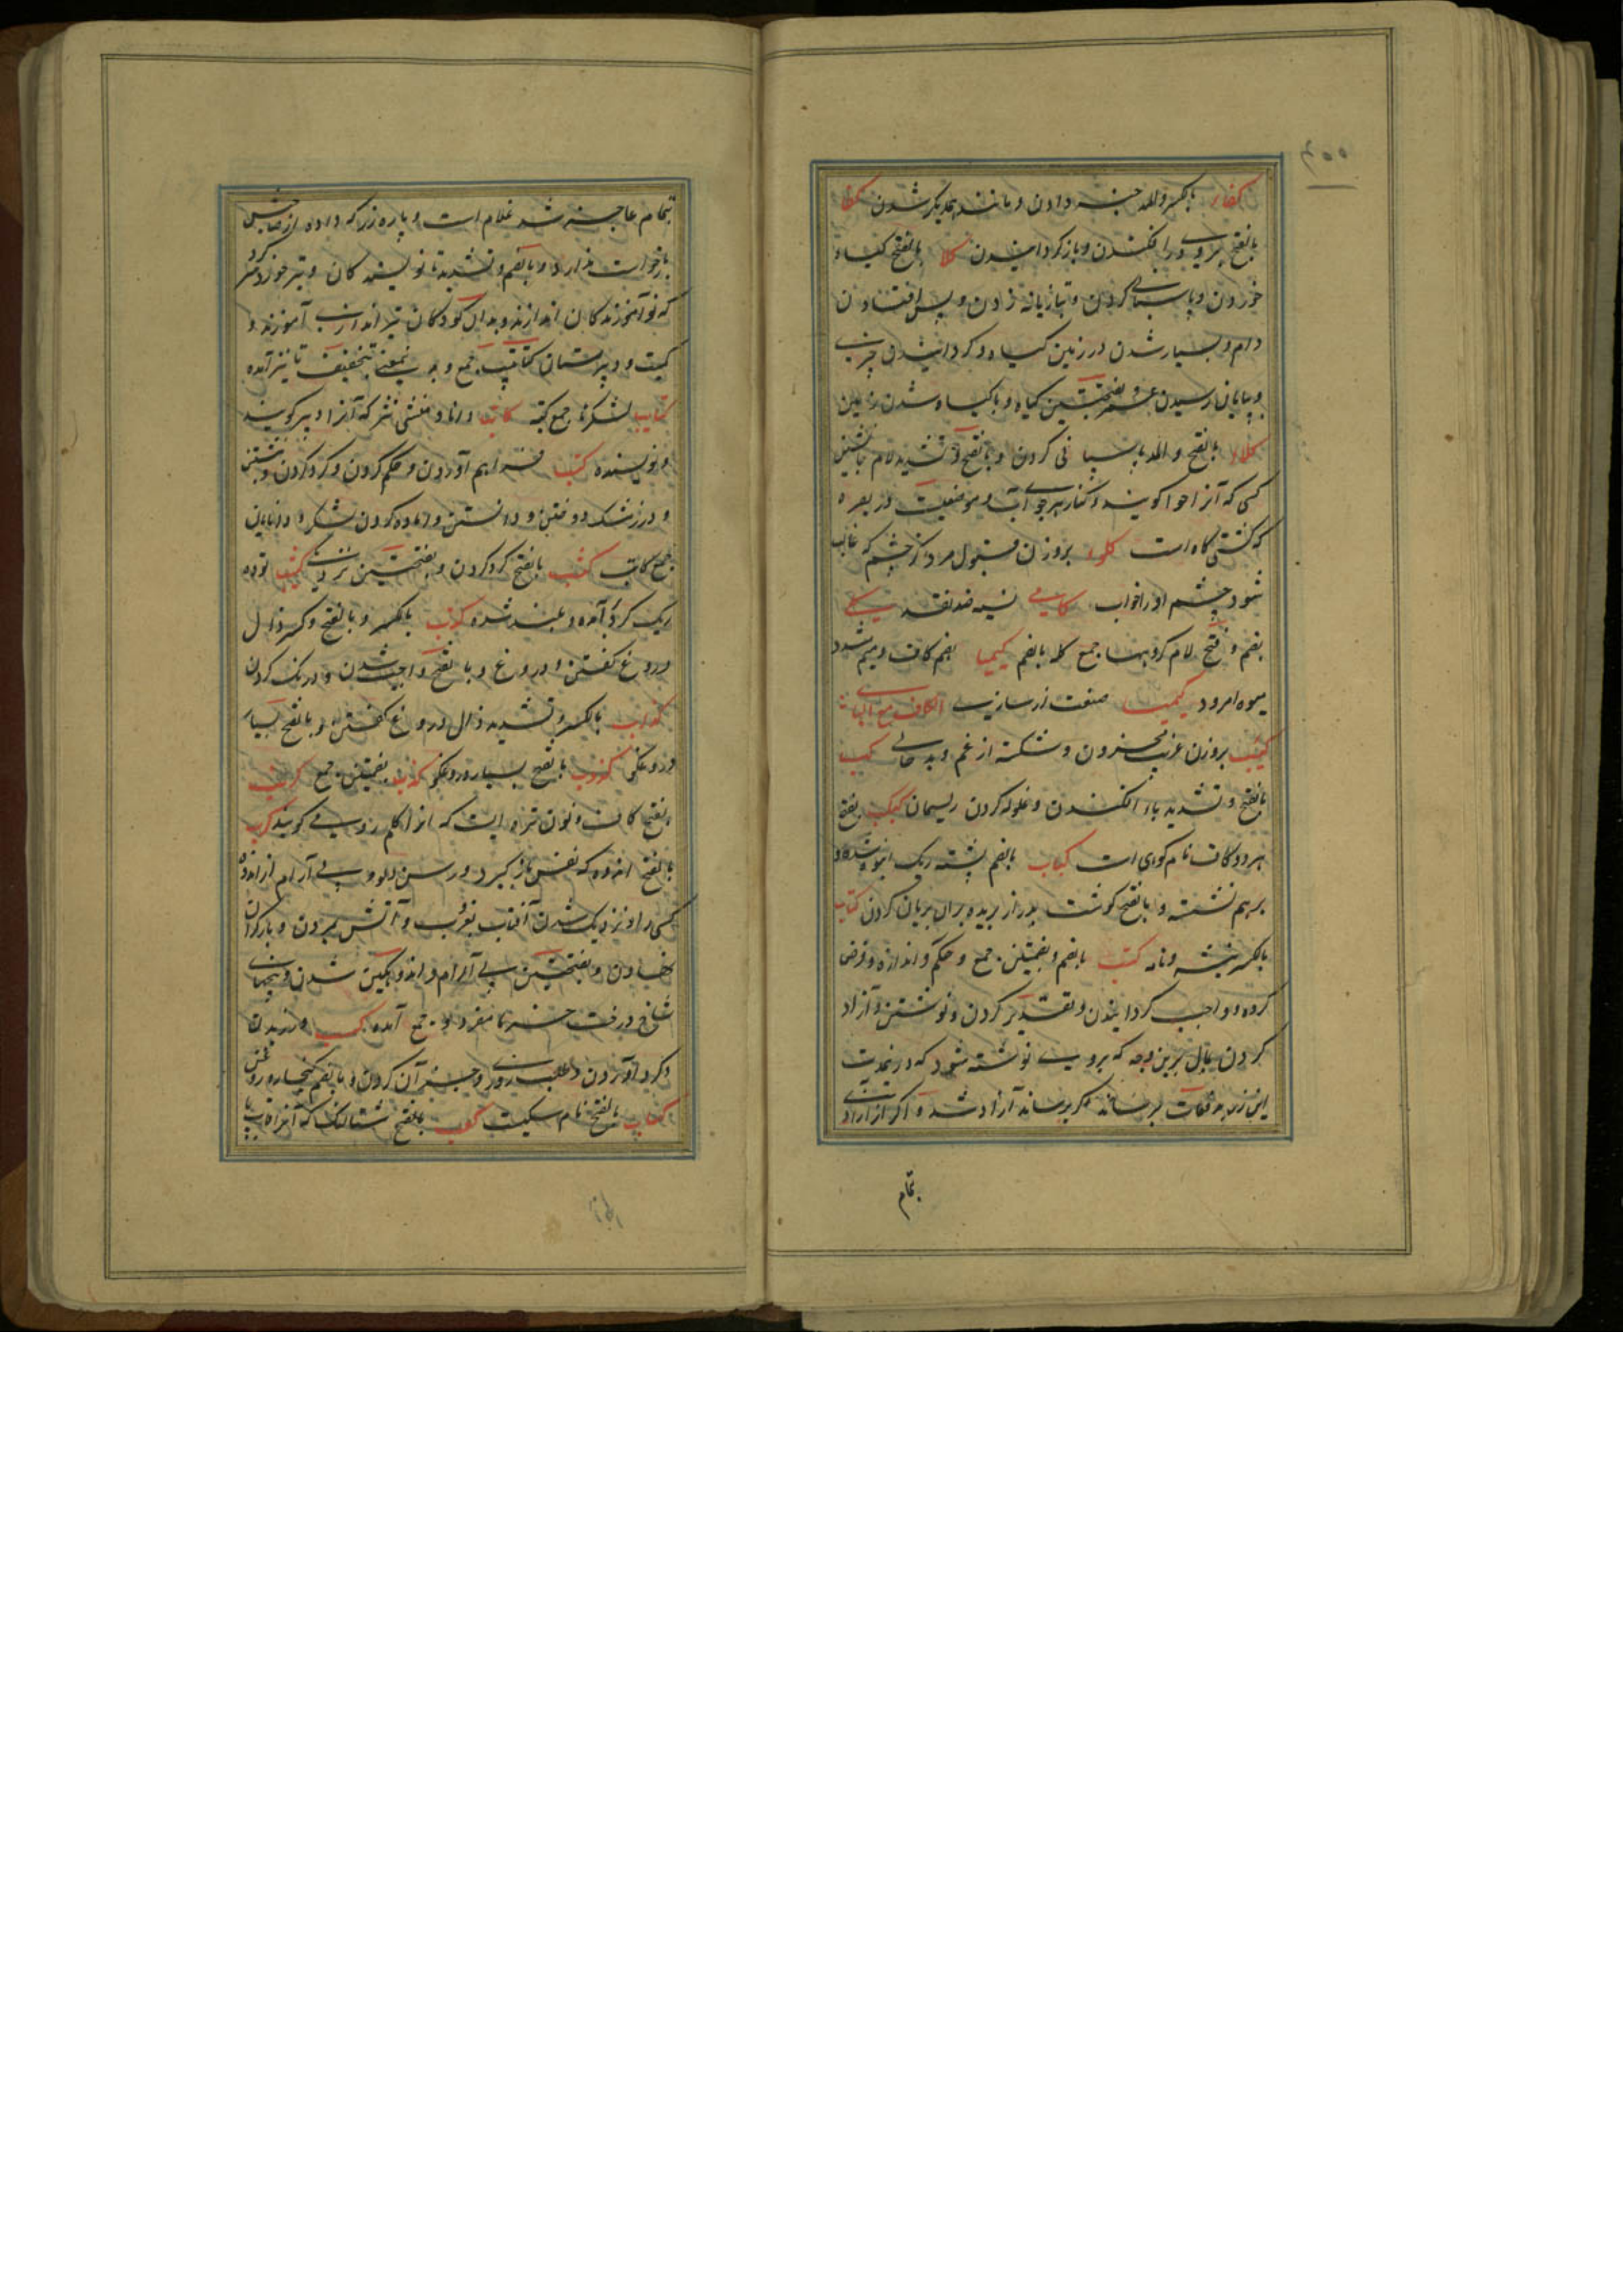 کفاء بالکسر والمد جزا دادن و مانند یکدیگر شدن
بالفتح بروی در افکندن و بازگردانیدن کلا بالفتح گیاه
خوردن و پاسبانی کردن و تازیانه زدن و پس افتادن
دام و بسیار شدن در زمین گیاه و گردانیدن چیزی
و بپایان رسیدن عمر و بفتحتین گیاه و با گیاه شدن زمین
کلاء بالفتح والمد پاسبانی کردن و بالفتح و تشدید لام
کسی که آنرا گویند و کنار هر جوی آب و موضعیت در بصره
که کشتی گاه است کلوء بروزن قبول مردی که چشم که غالب
شود چشم او را خواب کالی نسیه ضد نقد کلی
بضم و فتح لام گردها جمع کلیه بالضم بضم کاف و میم مشدد
میوه امرود کیمیا صنعت زرسازی الکاف مع الباء
کئیب بروزن غریب محزون و شکسته از غم و بدحالی کب
بالفتح و تشدید باء افکندن و غلوله کردن ریسمان کبکب بفتح
هر دو کاف نام کوهی است کباب بالضم پشته ریک انبوه شده و
بر هم نشسته و بالفتح گوشت دراز بریده بران بریان کردن کتاب
بالکسر نبشته و نامه کتب بالضم و بضمتین جمع و حکم و اندازه و فرض
کرده و واجب گردانیدن و تقدیر کردن و نوشتن و آزاد
کردن بمال برین وجه که بروی نوشته شود که در مدت
این زر بدفعات برساند اگر برساند آزاد شد و اگر از ادای
تمام
تمام عاجز شد غلام است و پاره زر که داده از صاحبش
بازخواست ندارد و بالضم و تشدید تا نویسندگان و تیر خورد
که نوآموزندگان اندازند و بدان کودکان تیر اندازی آموزند و
جمع و به تخفیف تا نیز آمده
کتایب لشکرها جمع کتیبه کاتب دانا و منشی نثر که آنرا دبیر گویند
و نویسنده کتب فراهم آوردن و حکم کردن و گرد کردن و نبشتن
و درز مشک دوختن و دانستن و آماده کردن لشکر و دانایان
جمع کاتب کثب بالفتح گرد کردن و بفتحتین نزدیکی کثیب توده
ریک گرد آمده و بلند شده کذب بالکسر و بالفتح و کسر ذال
دروغ گفتن و دروغ و بالفتح واجب شدن و درنگ کردن
کذاب بالکسر و تشدید ذال دروغ گفتن و بالفتح بسیار
دروغگو کذوب بالفتح بسیار دروغگو کذب بضمتین جمع
بفتح کاف و نون تره ایست که انرا کلم رومی گویند کرب
بالفتح اندوه که نفس باز گیرد و رسن دلو و بی آرام از اندوه
کسی را و نزدیک شدن آفتاب بغروب و آتش بردن و بار گران
نهادن و بفتحتین بی آرام و اندوهگین شدن و بیخهای
شاخ درخت خرما مفرد و جمع آمده کسب ورزیدن
و گرد آوردن و طلب روزی و جز آن کردن و بالضم کنجاره روغن
بالفتح نام سگیست کعب بالفتح شتالنگ که آنرا